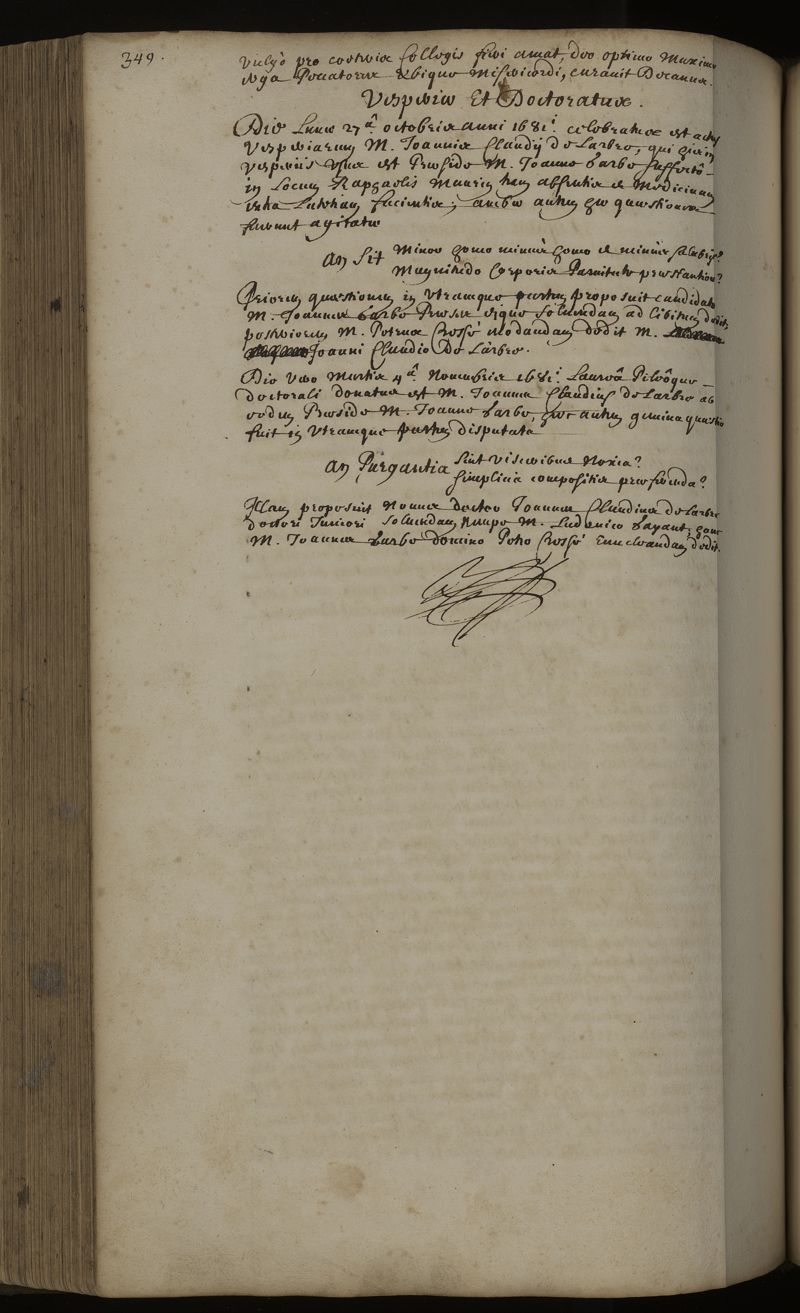 349.
vulgò pro coeteris Collegis fieri amat, Deo optimo Maximo
erga Peccatores ubique Misericordi, curavit Decanus.
Vesperiæ Et Doctoratus.
Die Lunæ 27.ª octobris anni 1681.i celebratus est actus
Vesperiarum M. Joannis Claudij De Larbre, qui
Vesperiis usus est Præside M. Joanne Garbe suffecto
in Locum Raphaelis Maurin tum absentis et Medicinam
facientis; ambæ autem hæ quæstiones
fuerunt agitatæ
An Sit Minor homo minùs homo et minùs salubris?
Magnitudo Corporis Parvitate præstantior?
Priorem quæstionem in utramque partem proposuit candidato
M. Joannes Garbe Præses eique solvendam ad libitum dedit,
posteriorem M. Petrus Crossé enodandam dedit M.
Joanni Claudio De Larbre.
Die vero Martis 4.ª Novembris 1681.i Laureâ Pileôque
Doctorali donatus est M. Joannes Claudius de Larbre ab
eodem Præside M. Joanne Garbe, hæc autem gemina quæstio
fuit in utramque partem disputata
An Purgantia sint visceribus Noxia?
simplicia compositis præferenda?
Illam proposuit Novus Doctor Joannes Claudius de Larbre
doctori Juniori solvendam nuper M. Ludovico Gayant; hanc
M. Joannes Garbe Domino Petro Crossé Enucleandam dedit.